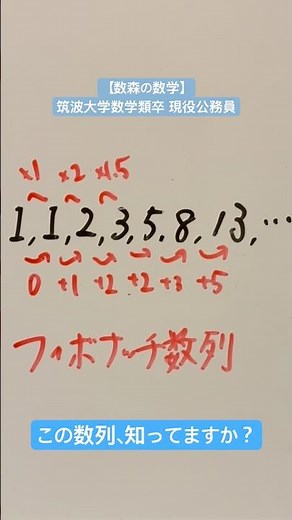 【数森の数学】
筑波大学数学類卒 現役公務員
×1 ×2 ×1.5
1, 1, 2, 3, 5, 8, 13, …
0 +1 +2 +2 +3 +5
フィボナッチ数列
この数列、知ってますか？